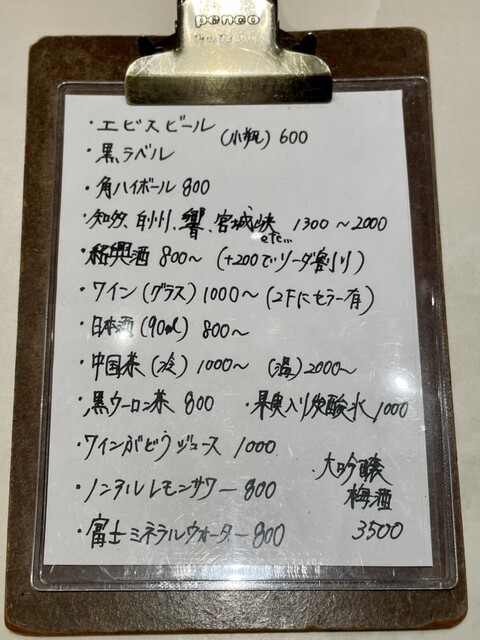 penco
・エビスビール
・黒ラベル
(小瓶) 600
・角ハイボール 800
・知多、白州、響、宮城峡 etc... 1300〜2000
・紹興酒 800〜 (+200でソーダ割り)
・ワイン(グラス) 1000〜 (2Fにセラー有)
・日本酒(90ml) 800〜
・中国茶(冷) 1000〜 (温) 2000〜
・黒ウーロン茶 800 ・果実入り炭酸水 1000
・ワインぶどうジュース 1000
・ノンアルレモンサワー 800
・富士ミネラルウォーター 800
・大吟醸
梅酒
3500